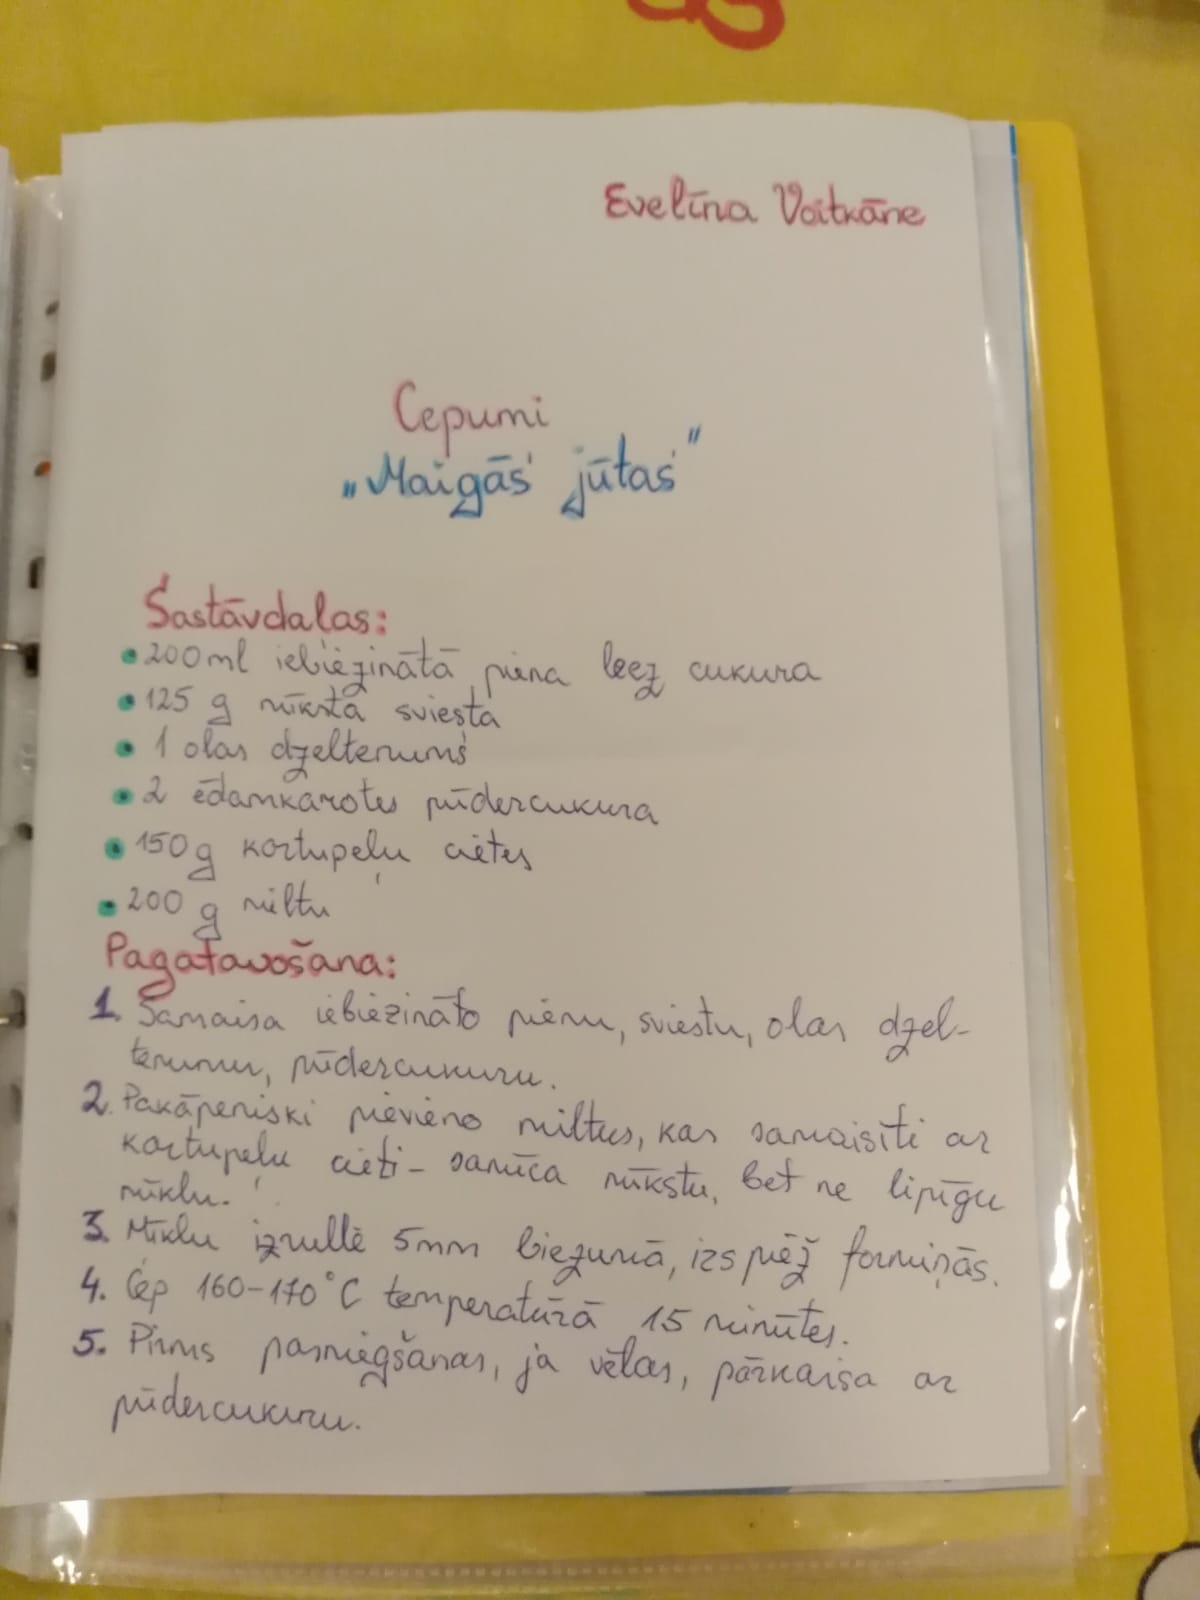 Evelīna Voitkāne
Cepumi
„Maigās jūtas"
Sastāvdaļas:
• 200ml iebiezinātā piena bez cukura
• 125 g mīksta sviesta
• 1 olas dzeltenums
• 2 ēdamkarotes pūdercukura
• 150g kartupeļu cietes
• 200 g miltu
Pagatavošana:
1. Samaisa iebiezināto pienu, sviestu, olas dzel-
tenumu, pūdercukuru.
2. Pakāpeniski pievieno miltus, kas samaisīti ar
kartupeļu cieti - samīca mīkstu, bet ne lipīgu
mīklu.
3. Mīklu izrullē 5mm biezumā, izspiež formiņās.
4. Cep 160-170°C temperatūrā 15 minūtes.
5. Pirms pasniegšanas, ja vēlas, pārkaisa ar
pūdercukuru.